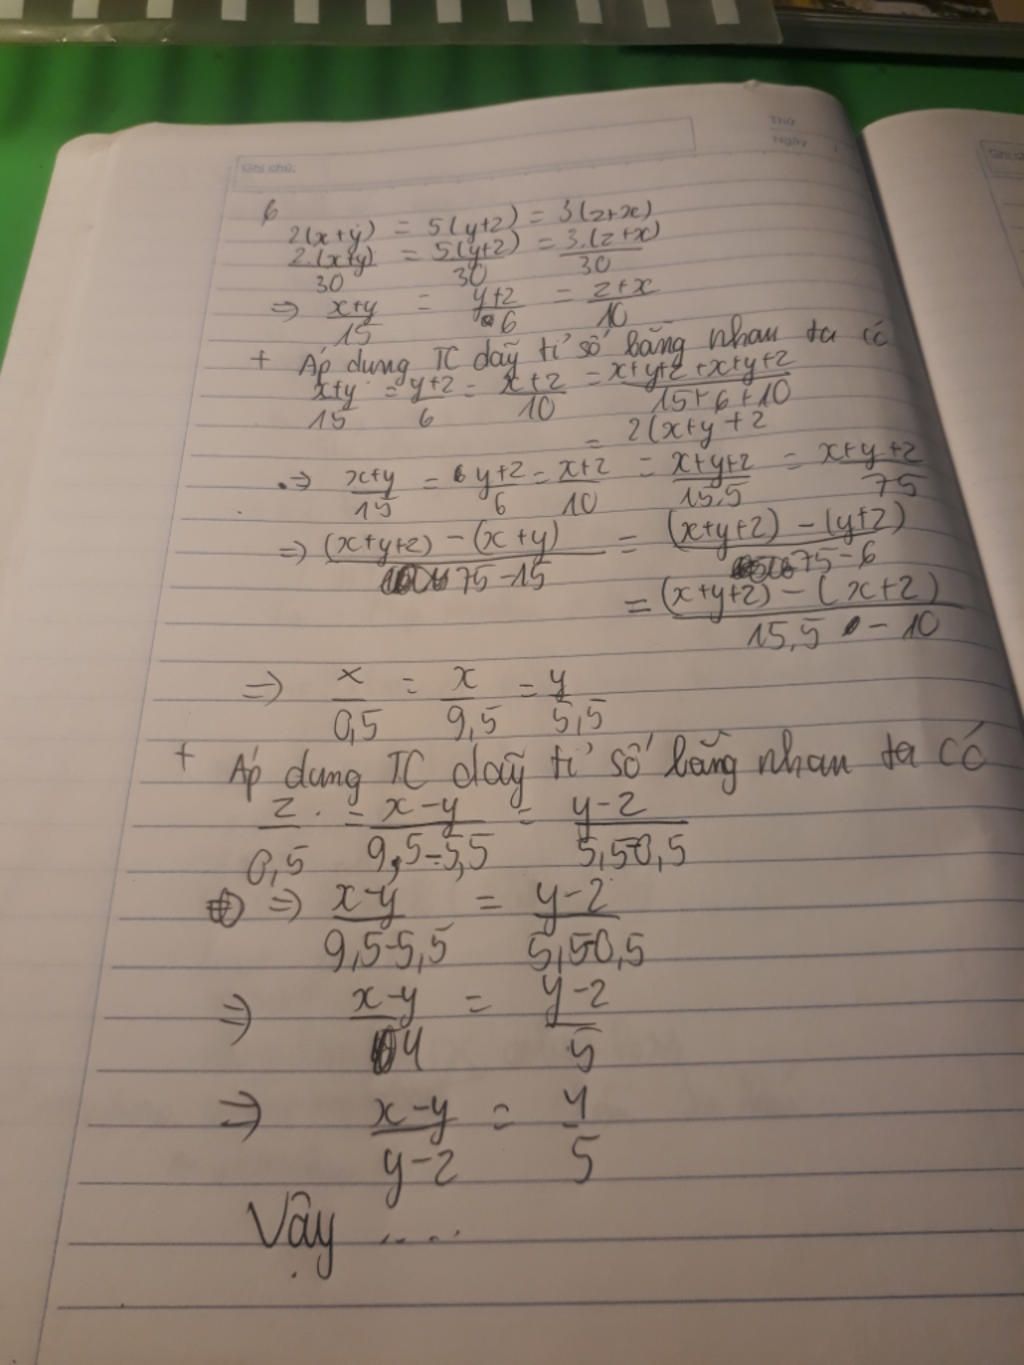 Thứ
Ngày
Ghi chú:
6
2(x+y) = 5(y+2) = 3(z+x)
2.(x+y)/30 = 5.(y+2)/30 = 3.(z+x)/30
=> x+y/15 = y+2/6 = z+x/10
+ Áp dụng TC dãy tỉ số bằng nhau ta có
x+y/15 = y+2/6 = x+2/10 = x+y+2+x+y+2/15+6+10
= 2(x+y+2
=> x+y/15 = 6 y+2/6 = x+2/10 = x+y+2/15,5 = x+y+2/75
=> (x+y+2) - (x+y)/75-15 = (x+y+2) - (y+2)/75-6
= (x+y+2) - (x+2)/15,5 - 10
=> x/0,5 = x/9,5 = y/5,5
+ Áp dụng TC dãy tỉ số bằng nhau ta có
z/0,5 = x-y/9,5-5,5 = y-2/5,5-0,5
=> x-y/9,5-5,5 = y-2/5,5-0,5
=> x-y/4 = y-2/5
=> x-y/y-2 = 4/5
Vậy ....